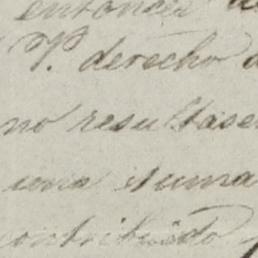 entonces
V. derecho
no resultase
una suma
contribuido